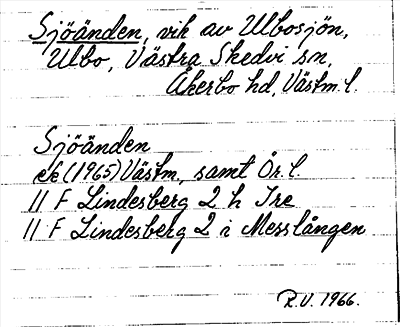 Sjöänden, vik av Ulbosjön,
Ulbo, Västra Skedvi sn,
Åkerbo hd, Västm. l.
Sjöänden
ek (1965) Västm, samt Ör. l.
11 F Lindesberg 2 h Ire
11 F Lindesberg 2 i Messlången
R.V. 1966.